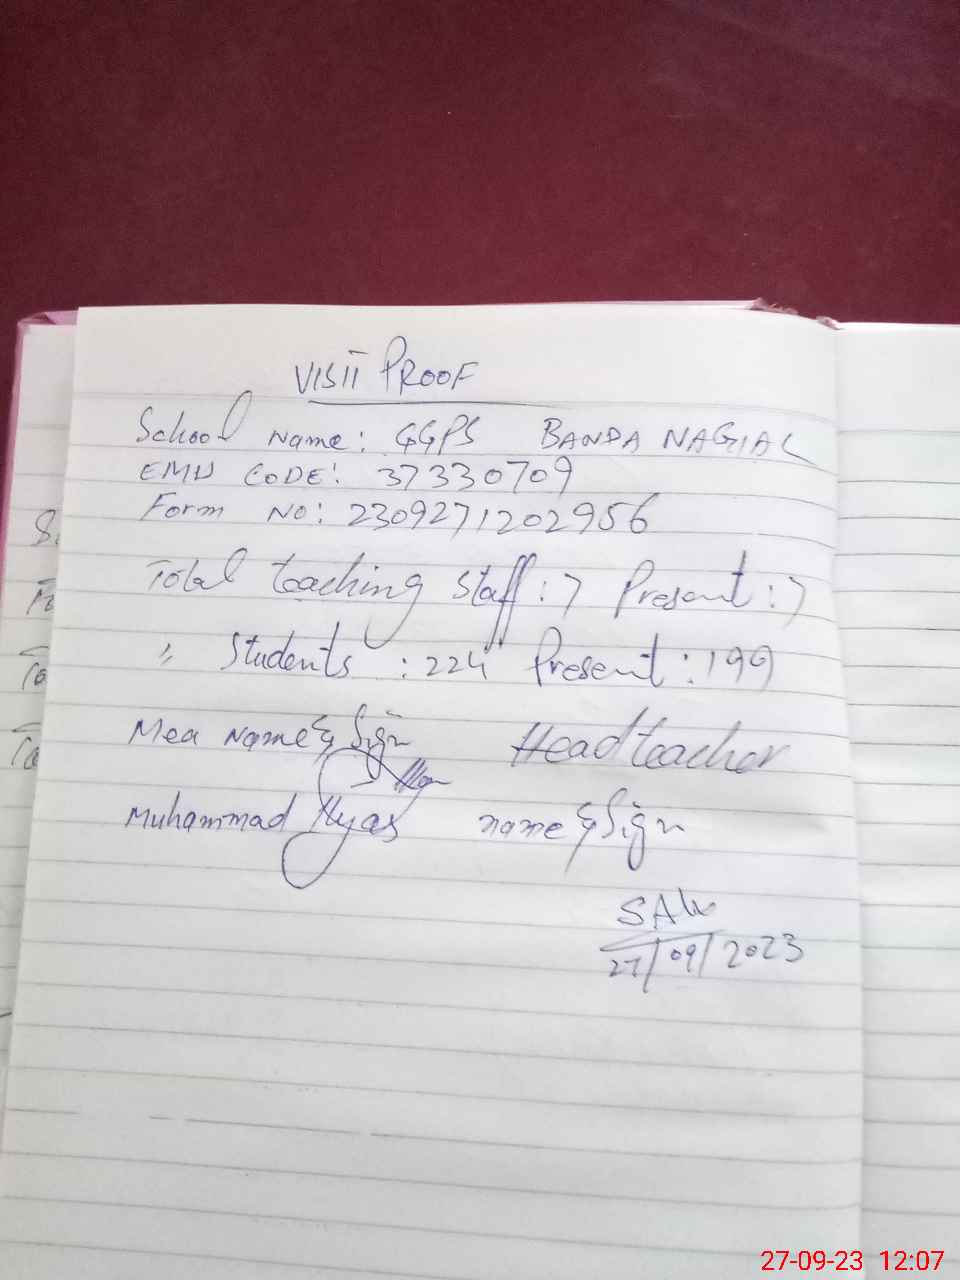 VISIT PROOF
School Name: GGPS BANDA NAGIAL
EMIS CODE: 37330709
Form No: 2309271202956
Total teaching staff: 7 Present: 7
" Students: 224 Present: 199
Mea Name & Sign Headteacher
Muhammad Ilyas name & Sign
27/09/2023
27-09-23 12:07